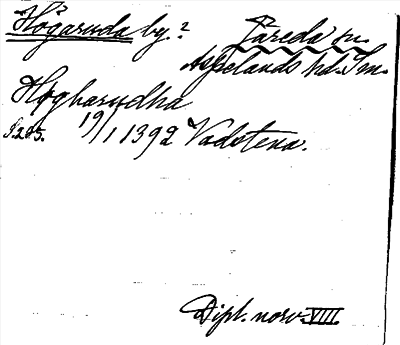 Högaruda by.? Järeda sn.
Aspelands hd. Sm.
Høgharudha
S.285. 19/1 1392 Vadstena.
Dipl. norv. XVIII.